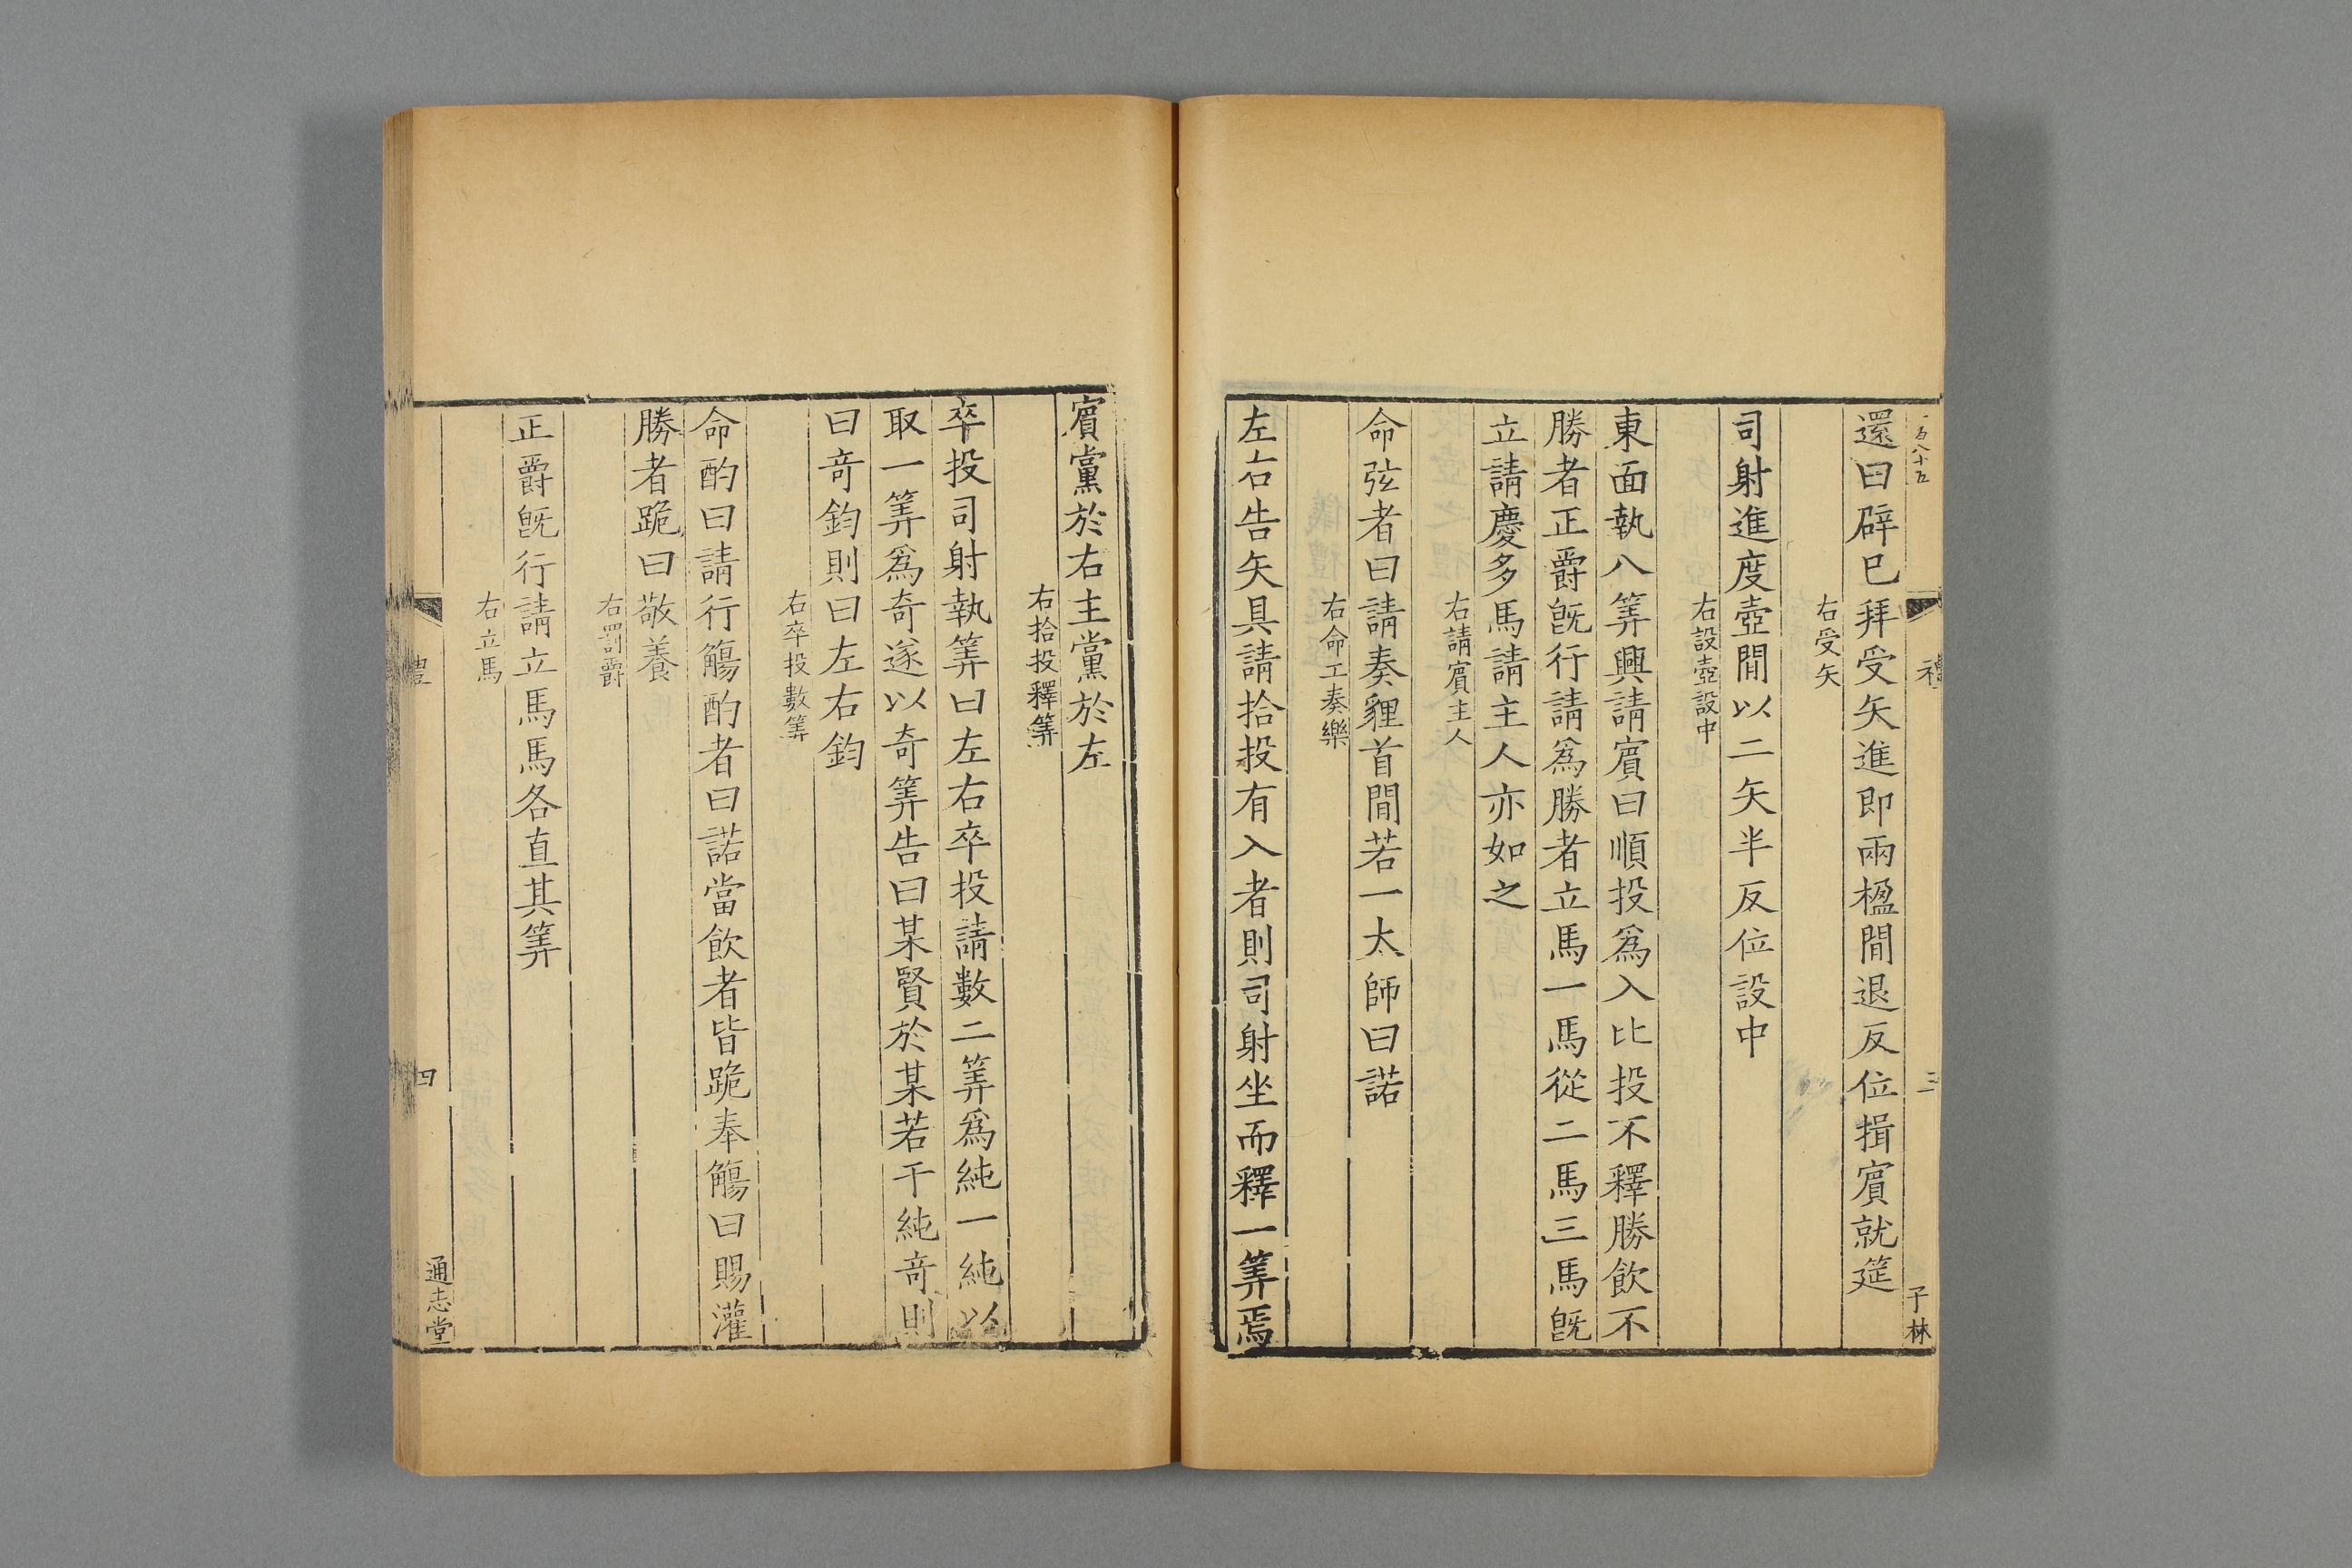 還曰辟已拜受矢進即兩楹間退反位揖賓就筵
右受矢
司射進度壺間以二矢半反位設中
右設壺設中
東面執八筭興請賓曰順投爲入比投不釋勝飲不
勝者正爵既行請爲勝者立馬一馬從二馬三馬既
立請慶多馬請主人亦如之
右請賓主人
命弦者曰請奏貍首間若一太師曰諾
右命工奏樂
左右告矢具請拾投有入者則司射坐而釋一筭焉
賓黨於右主黨於左
右拾投釋筭
卒投司射執筭曰左右卒投請數二筭爲純一純以
取一筭爲奇遂以奇筭告曰某賢於某若干純奇則
曰奇鈞則曰左右鈞
右卒投數筭
命酌曰請行觴酌者曰諾當飲者皆跪奉觴曰賜灌
勝者跪曰敬養
右罰爵
正爵既行請立馬馬各直其筭
右立馬
百八十五
三
子林
禮
四
通志堂